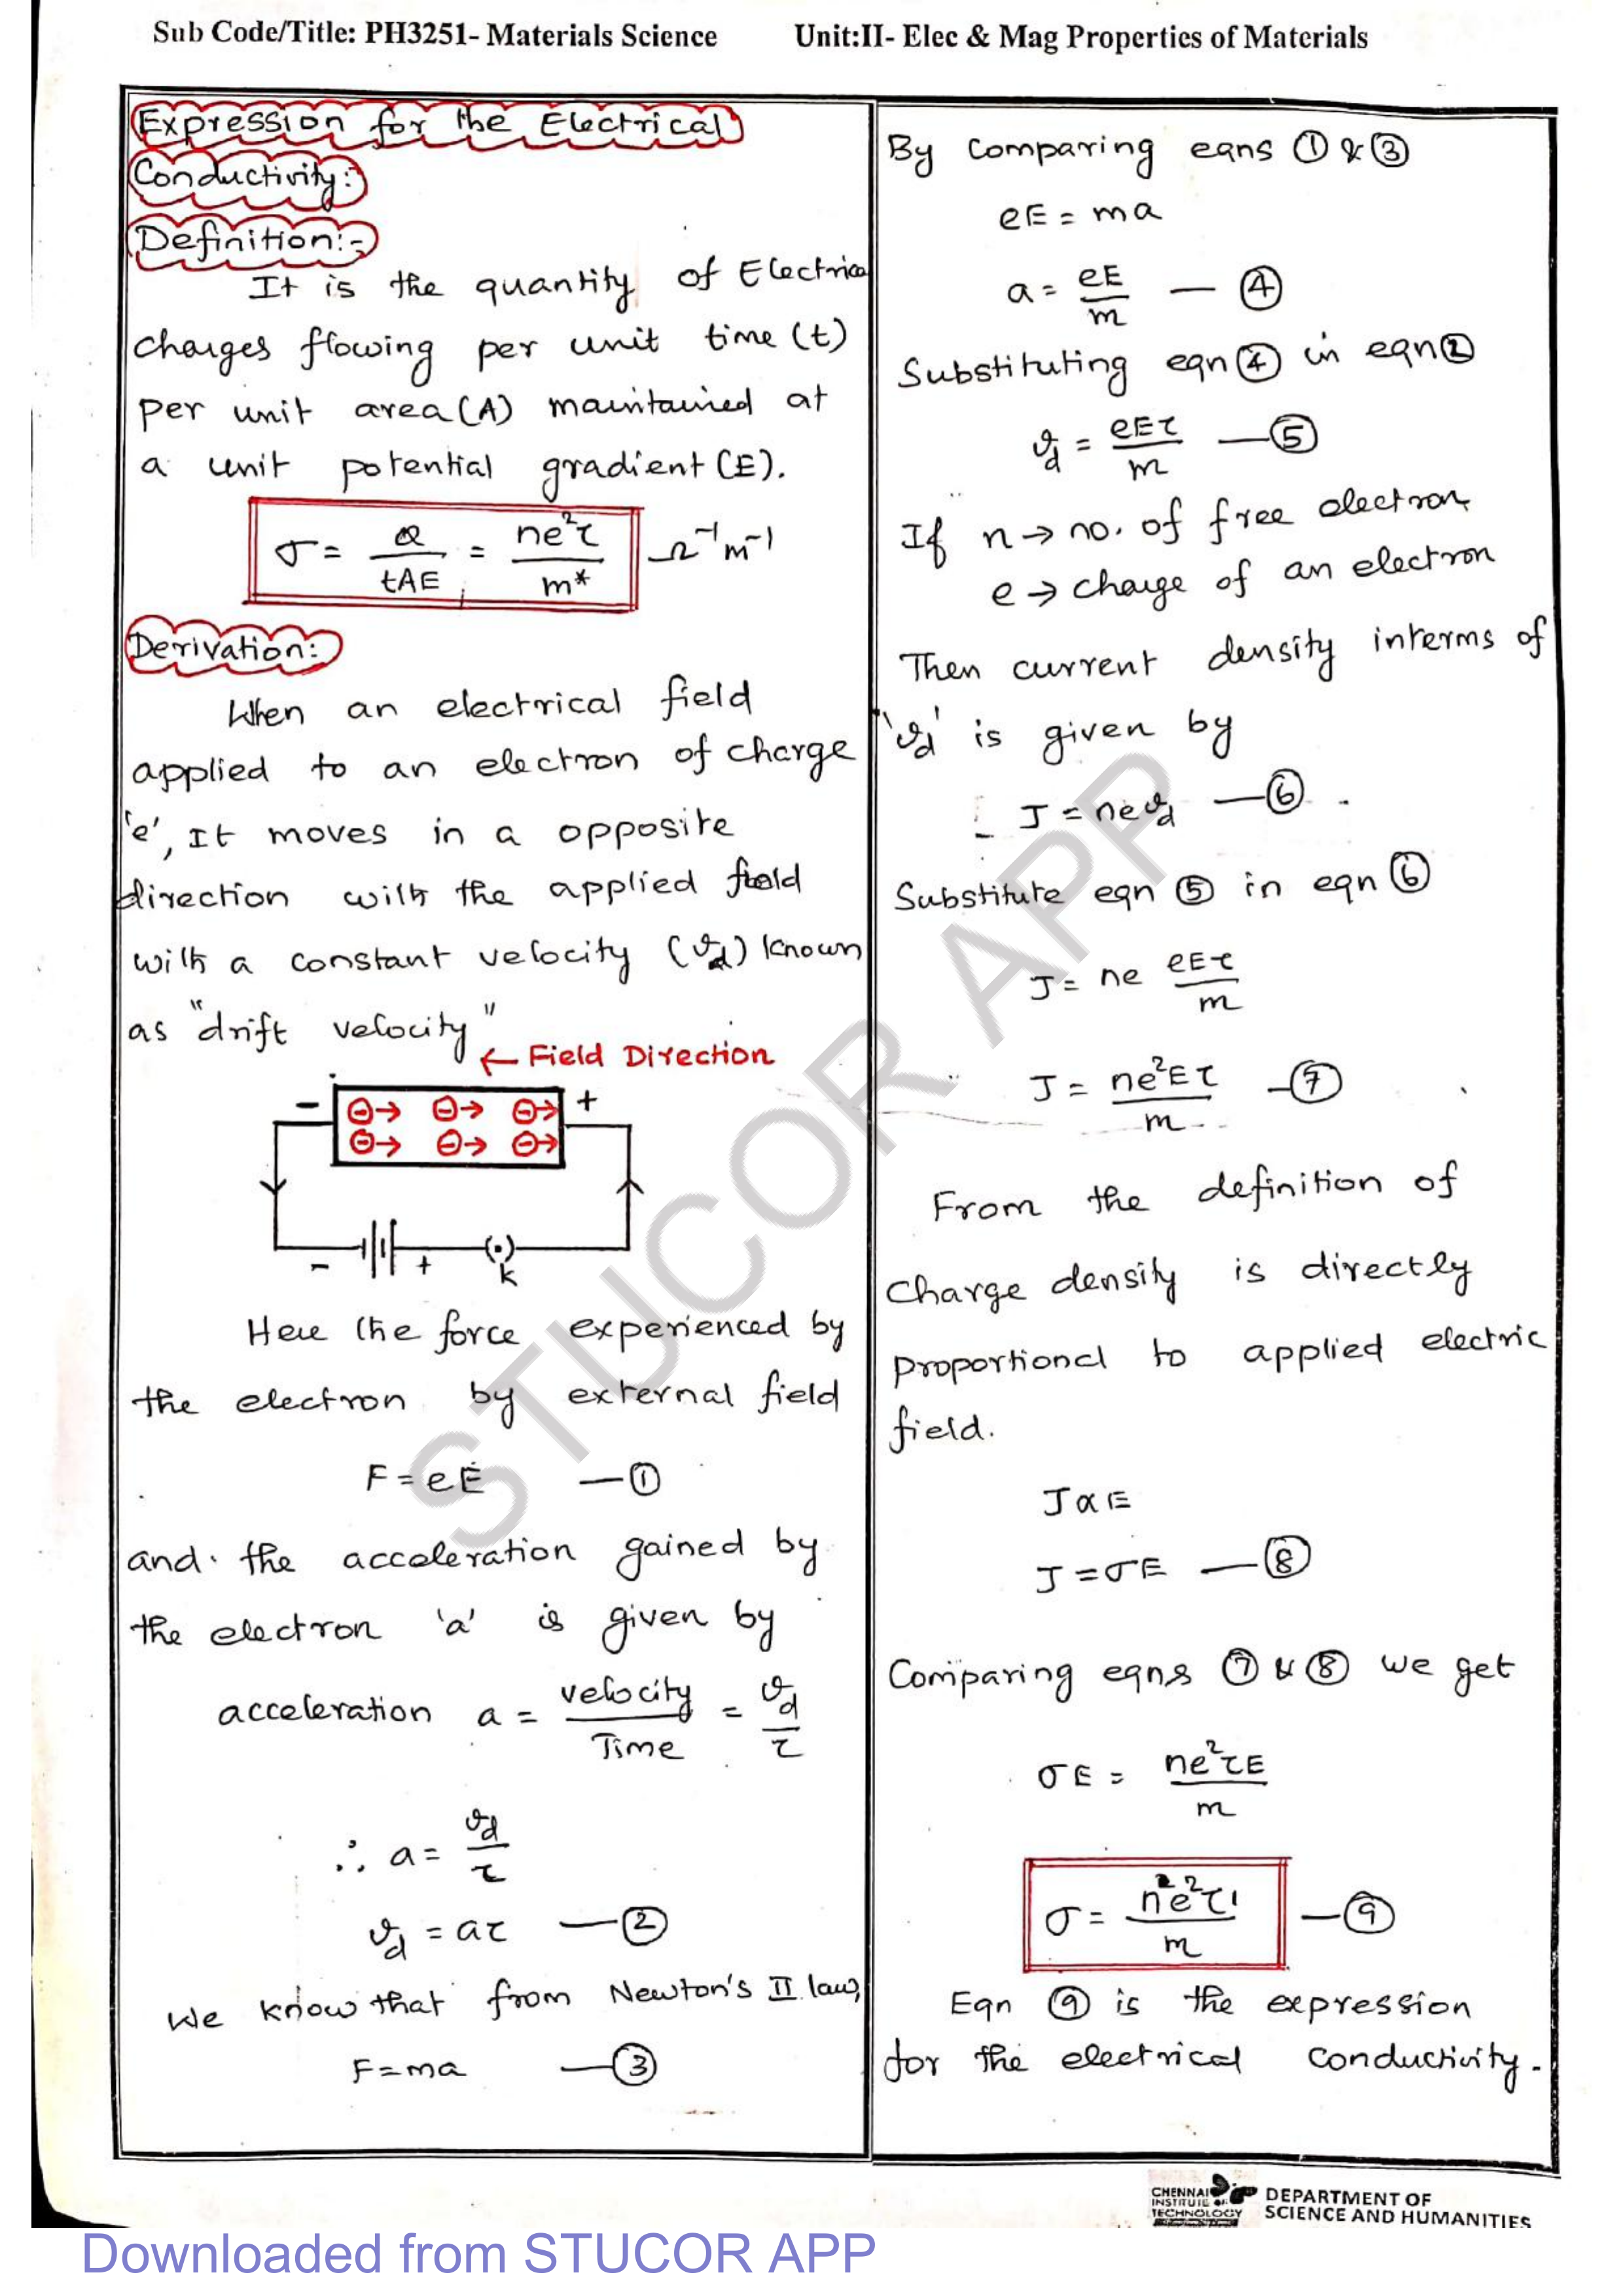 Sub Code/Title: PH3251- Materials Science Unit:II- Elec & Mag Properties of Materials
Expression for the Electrical
Conductivity:
Definition:-
It is the quantity of Electrical
charges flowing per unit time (t)
per unit area (A) maintained at
a unit potential gradient (E).
σ = Q/tAE = ne²τ/m* Ω⁻¹m⁻¹
Derivation:
When an electrical field
applied to an electron of charge
'e', It moves in a opposite
direction with the applied field
with a constant velocity (vd) known
as "drift velocity"
← Field Direction
- ⊖→ ⊖→ ⊖→ +
⊖→ ⊖→ ⊖→
- + (•)
k
Here the force experienced by
the electron by external field
F = eE — ①
and the acceleration gained by
the electron 'a' is given by
acceleration a = velocity/Time = vd/τ
∴ a = vd/τ
vd = aτ — ②
We know that from Newton's II law,
F = ma — ③
By comparing eqns ① & ③
eE = ma
a = eE/m — ④
Substituting eqn ④ in eqn ②
vd = eEτ/m — ⑤
If n → no. of free electron
e → charge of an electron
Then current density interms of
'vd' is given by
J = nevd — ⑥
Substitute eqn ⑤ in eqn ⑥
J = ne eEτ/m
J = ne²Eτ/m — ⑦
From the definition of
Charge density is directly
proportional to applied electric
field.
J α E
J = σE — ⑧
Comparing eqns ⑦ & ⑧ we get
σE = ne²τE/m
σ = ne²τ/m — ⑨
Eqn ⑨ is the expression
for the electrical conductivity.
STUCOR APP
CHENNAI
INSTITUTE OF
TECHNOLOGY
DEPARTMENT OF
SCIENCE AND HUMANITIES
Downloaded from STUCOR APP